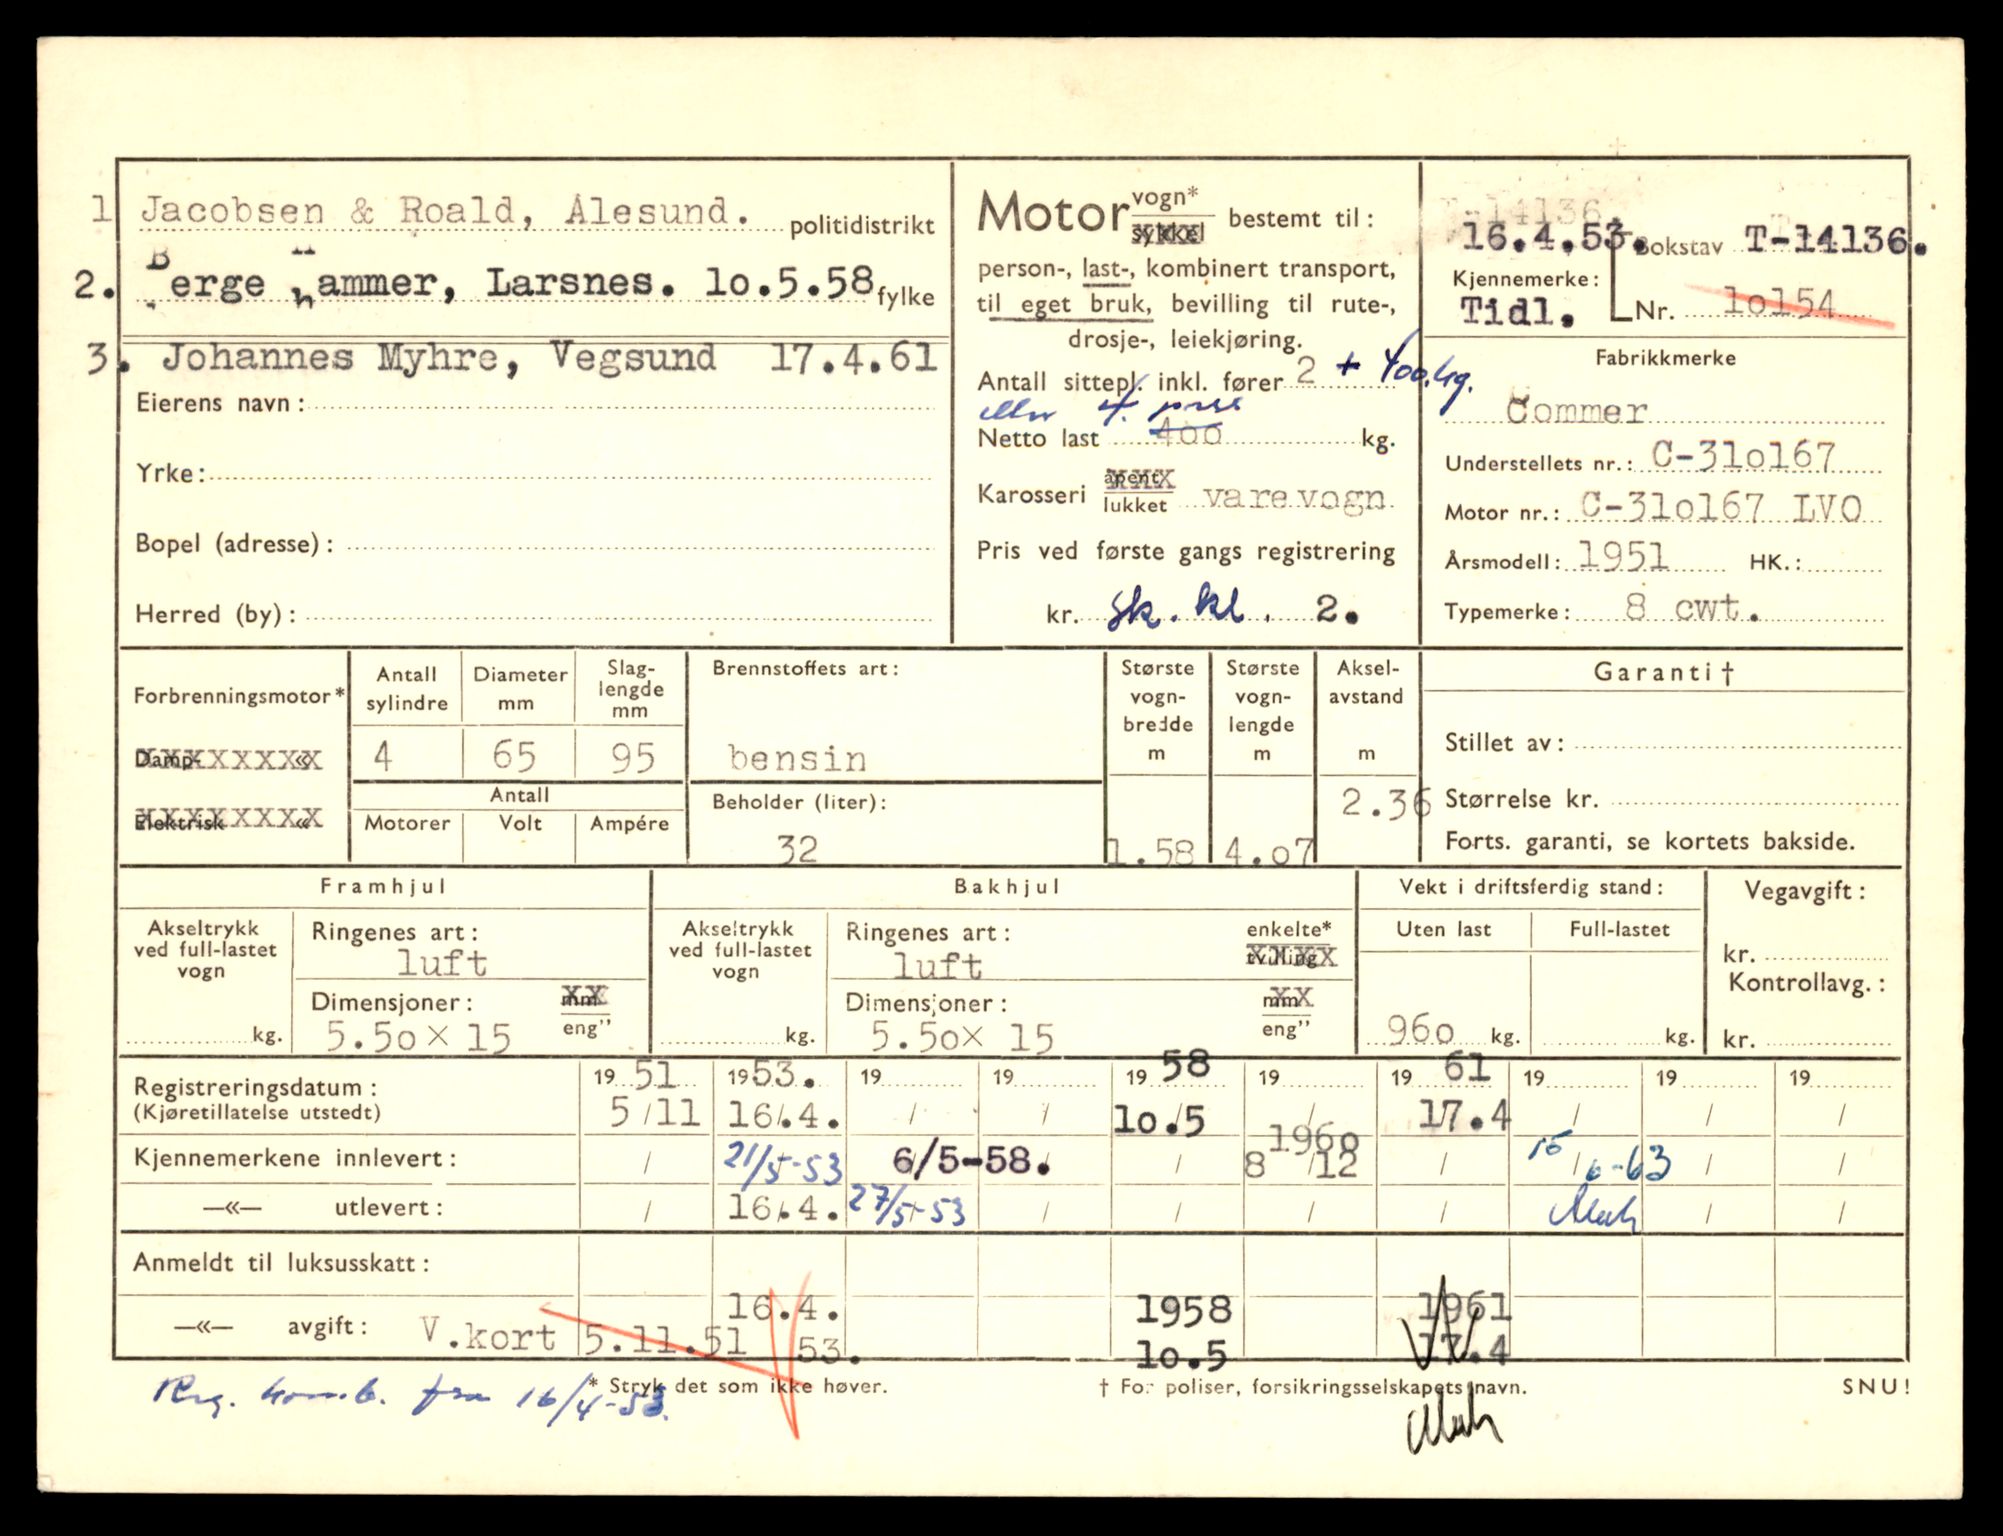 1 Jacobsen & Roald, Ålesund. politidistrikt
2. Berge Hammer, Larsnes. 10.5.58 fylke
3. Johannes Myhre, Vegsund 17.4.61
Eierens navn:
Yrke:
Bopel (adresse):
Herred (by):
Motor vogn*
sykkel
bestemt til:
person-, last-, kombinert transport,
til eget bruk, bevilling til rute-,
drosje-, leiekjøring.
Antall sittepl. inkl. fører 2 + 400 kg.
eller 4 pers
Netto last 400 kg.
Karosseri åpent
lukket varevogn
Pris ved første gangs registrering
kr. Sk. kl. 2.
T-14136
16.4.53. Bokstav T-14136.
Kjennemerke:
Tidl. Nr. lo154
Fabrikkmerke
Commer
Understellets nr.: C-31o167
Motor nr.: C-31o167 LVO
Årsmodell: 1951 HK.:
Typemerke: 8 cwt.
Forbrenningsmotor*
Damp- «
Elektrisk «
Antall sylindre
4
Diameter mm
65
Slag-
lengde
mm
95
Antall
Motorer Volt Ampére
Brennstoffets art:
bensin
Beholder (liter):
32
Største
vogn-
bredde
m
1.58
Største
vogn-
lengde
m
4.o7
Aksel-
avstand
m
2.36
Garanti †
Stillet av:
Størrelse kr.
Forts. garanti, se kortets bakside.
Framhjul
Akseltrykk
ved full-lastet
vogn
kg.
Ringenes art:
luft
Dimensjoner: mm
eng”
5.5o X 15
Bakhjul
Akseltrykk
ved full-lastet
vogn
kg.
Ringenes art: enkelte*
tvilling
luft
Dimensjoner: mm
eng”
5.5oX 15
Vekt i driftsferdig stand:
Uten last Full-lastet
96o kg. kg.
Vegavgift:
kr.
Kontrollavg.:
kr.
Registreringsdatum: 19 51 1953. 19 19 19 58 19 19 61 19 19 19
(Kjøretillatelse utstedt) 5/11 16.4. / / 10.5 / 17.4 / / /
196o
Kjennemerkene innlevert: / 21/5-53 6/5-58. / / 8/12 / 15/6-63 / /
—«— utlevert: / 16.4. 27/5-53 / / / / / /
Anmeldt til luksusskatt:
16.4. 1958 1961
—«— avgift: V.kort 5.11.51 53. 10.5 17.4
* Stryk det som ikke høver. † For poliser, forsikringsselskapets navn. SNU!
Reg. komb. fra 16/4-53.